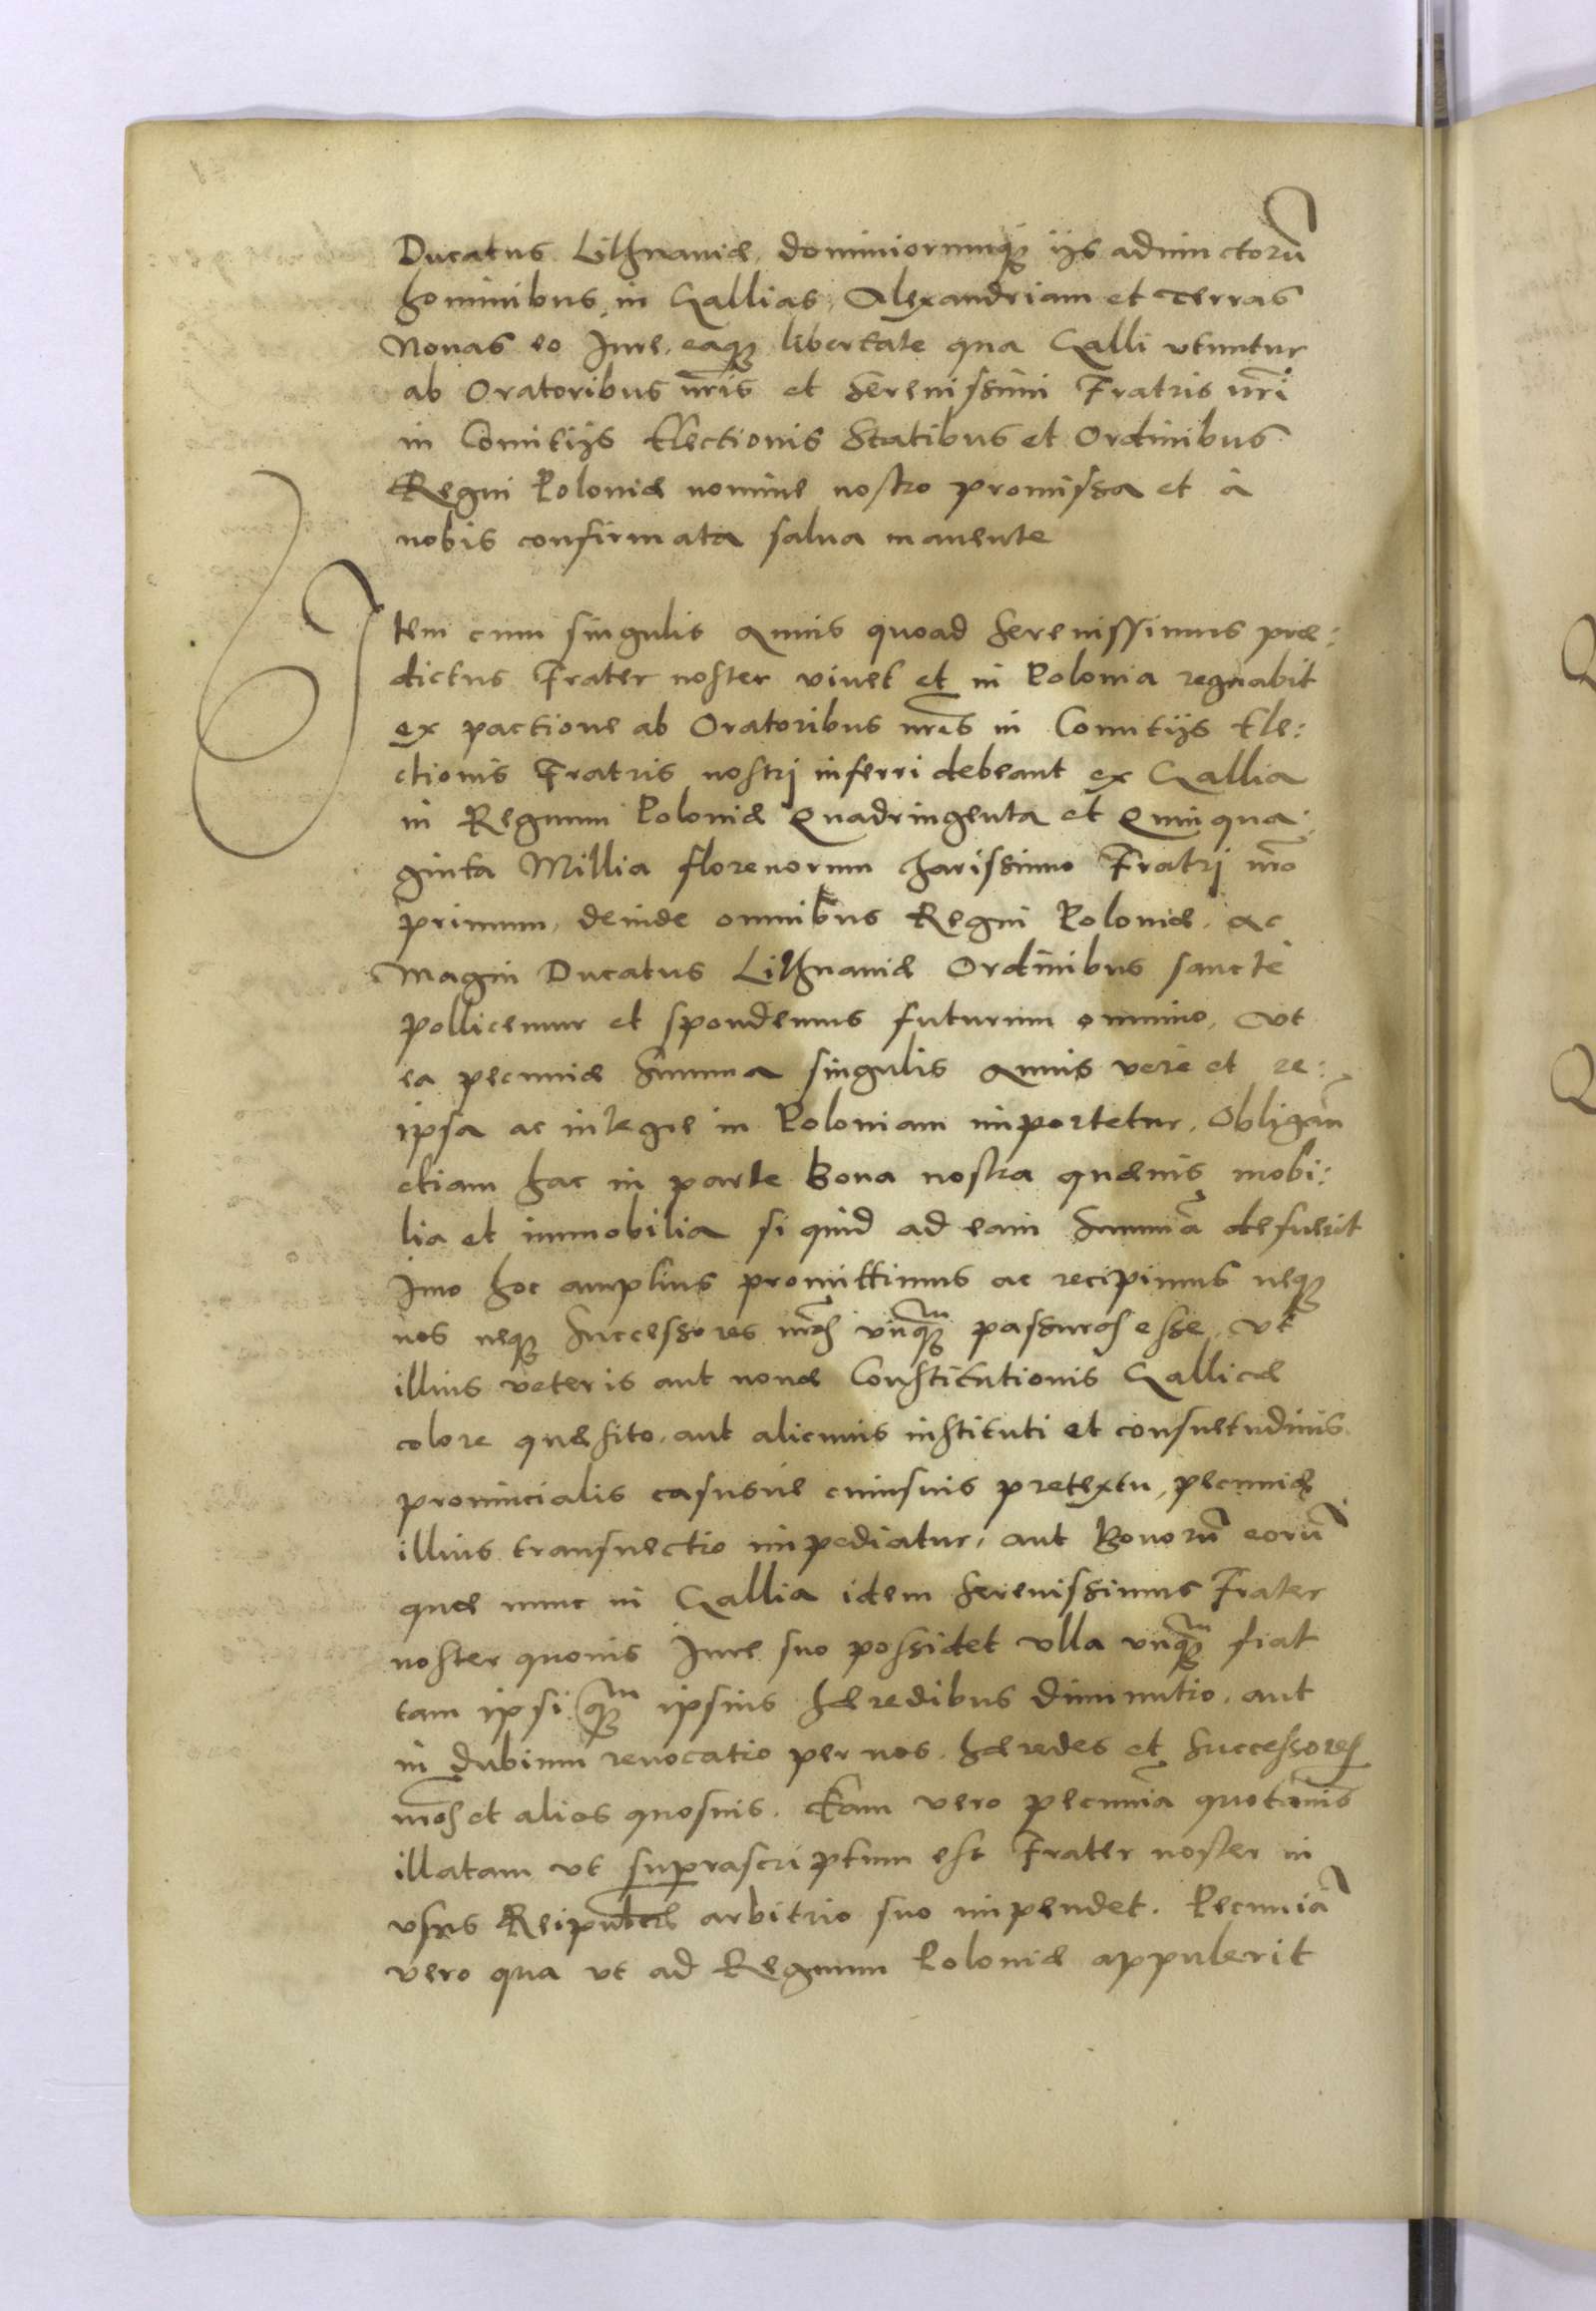 Ducatus Lithuaniæ, dominiorumq; ijs adiunctorũ
hominibus, in Gallias, Alexandriam et Terras
Nouas eo Jure, eaq; libertate qua Galli vtuntur
ab Oratoribus nr̃is et Serenissimi Fratris nr̃i
in Comitijs Electionis Statibus et Ordinibus
Regni Poloniæ nomine nostro promissa et à
nobis confirmata salua manente
Item cum singulis annis quoad Serenissimus præ:
dictus Frater noster viuet et in Polonia regnabit
ex pactione ab Oratoribus nr̃is in Comitijs Ele:
ctionis Fratris nostrj inferri debeant ex Gallia
in Regnum Poloniæ Quadringenta et Quinqua:
ginta Millia florenorum charissimo Fratrj nr̃o
primum, deinde omnibus Regni Poloniæ, ac
Magni Ducatus Lithuaniæ Ordinibus sancte
pollicemur et spondemus futurum omnino, vt
ea pecuniæ Summa singulis annis vere et re:
ipsa ac integre in Poloniam importetur, Obligam̃
etiam hac in parte Bona nostra quæuis mobi:
lia et immobilia si quid ad eam Summã defuerit
Jmo hoc amplius promittimus ac recipimus neq;
nos neq; Successores nr̃os vnq̃ passuros esse, vt
illius veteris aut nouæ Constitutionis Gallicæ
colore quæsito, aut alicuius instituti et consuetudinis
prouincialis casusue cuiusuis pretextu, pecuniæ
illius transuectio impediatur, aut Bonorũ eorũ
quæ nunc in Gallia idem Serenissimus Frater
noster quouis Jure suo possidet vlla vnq̃ fiat
tam ipsi q̃ ipsius hæredibus diminutio, aut
in dubium reuocatio per nos, hæredes et Successores
nr̃os et alios quosuis. Eam vero pecuniã quotãnis
illatam vt suprascriptum est Frater noster in
vsus Reipublcæ arbitrio suo impendet. Pecuniã
vero qua vt ad Regnum Poloniæ appulerit